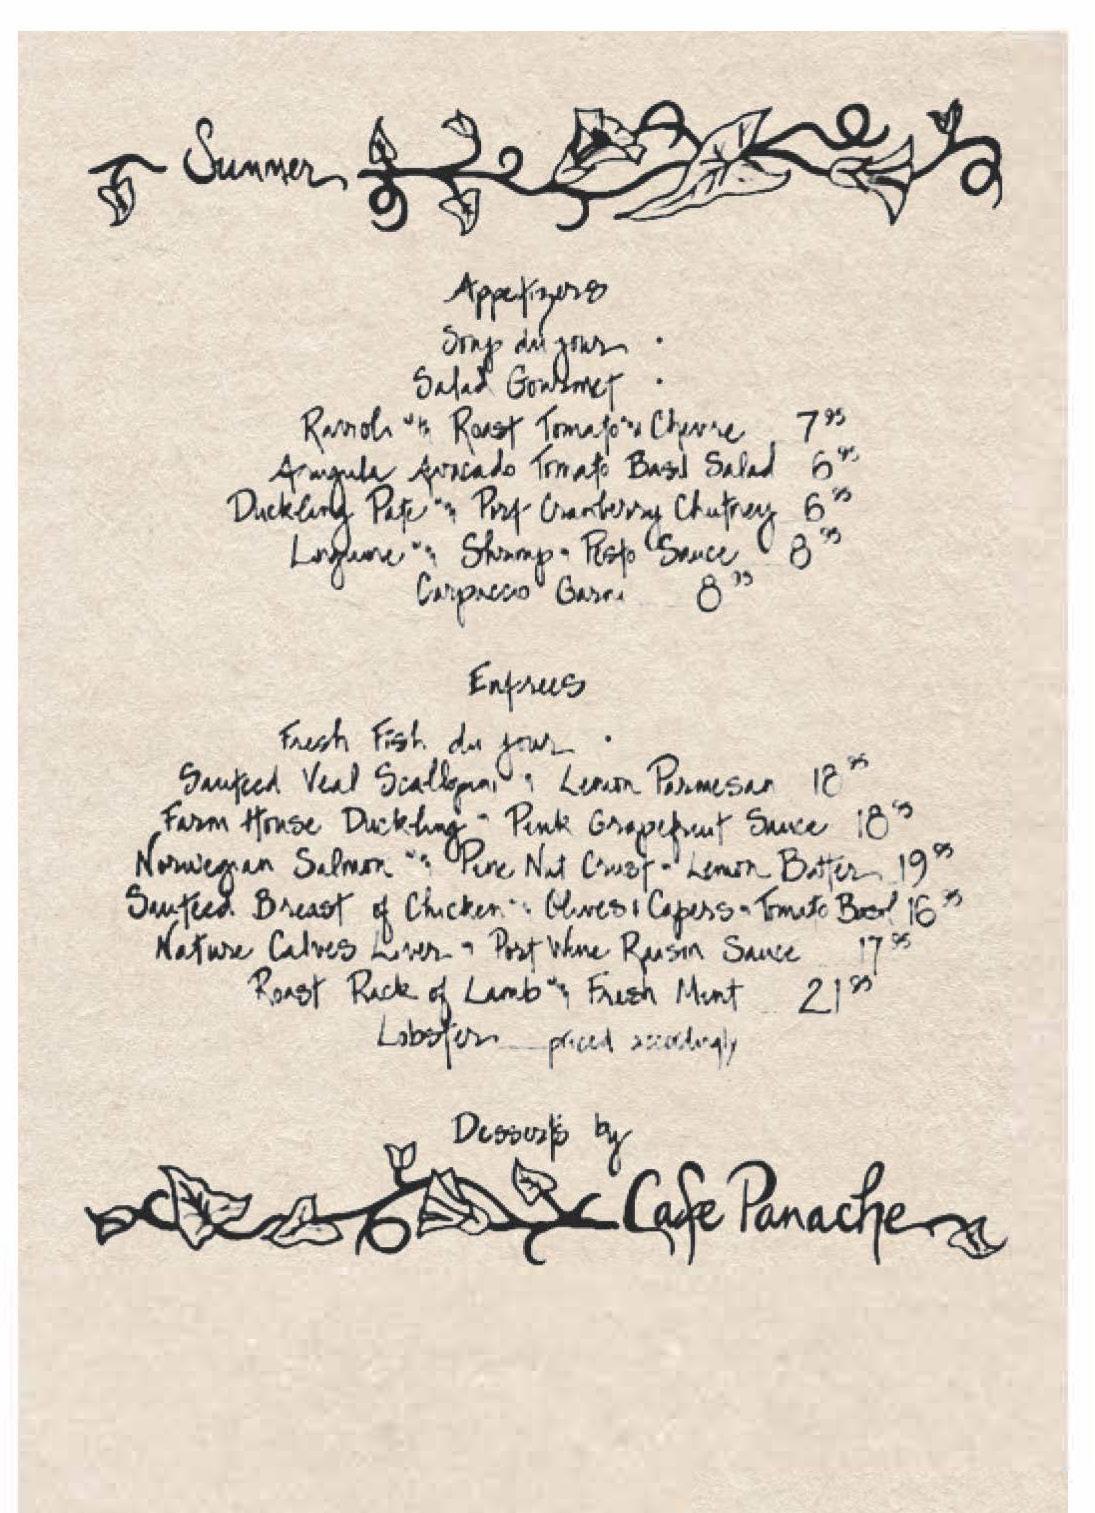 Summer
Appetizers
Soup du jour .
Salad Gourmet .
Ravioli with Roast Tomato Chevre 7 95
Arugula Avocado Tomato Basil Salad 6 95
Duckling Pate with Port Cranberry Chutney 6 95
Linguine with Shrimp - Pesto Sauce 8 95
Carpaccio Garni 8 95
Entrees
Fresh Fish du jour .
Sauteed Veal Scallopini Lemon Parmesan 18 95
Farm House Duckling - Pink Grapefruit Sauce 18 95
Norwegian Salmon with Pine Nut Crust - Lemon Butter 19 95
Sauteed Breast of Chicken with Olives & Capers - Tomato Basil 16 95
Nature Calves Liver - Port Wine Raisin Sauce 17 95
Roast Rack of Lamb with Fresh Mint 21 95
Lobster priced accordingly
Desserts by
Cafe Panache